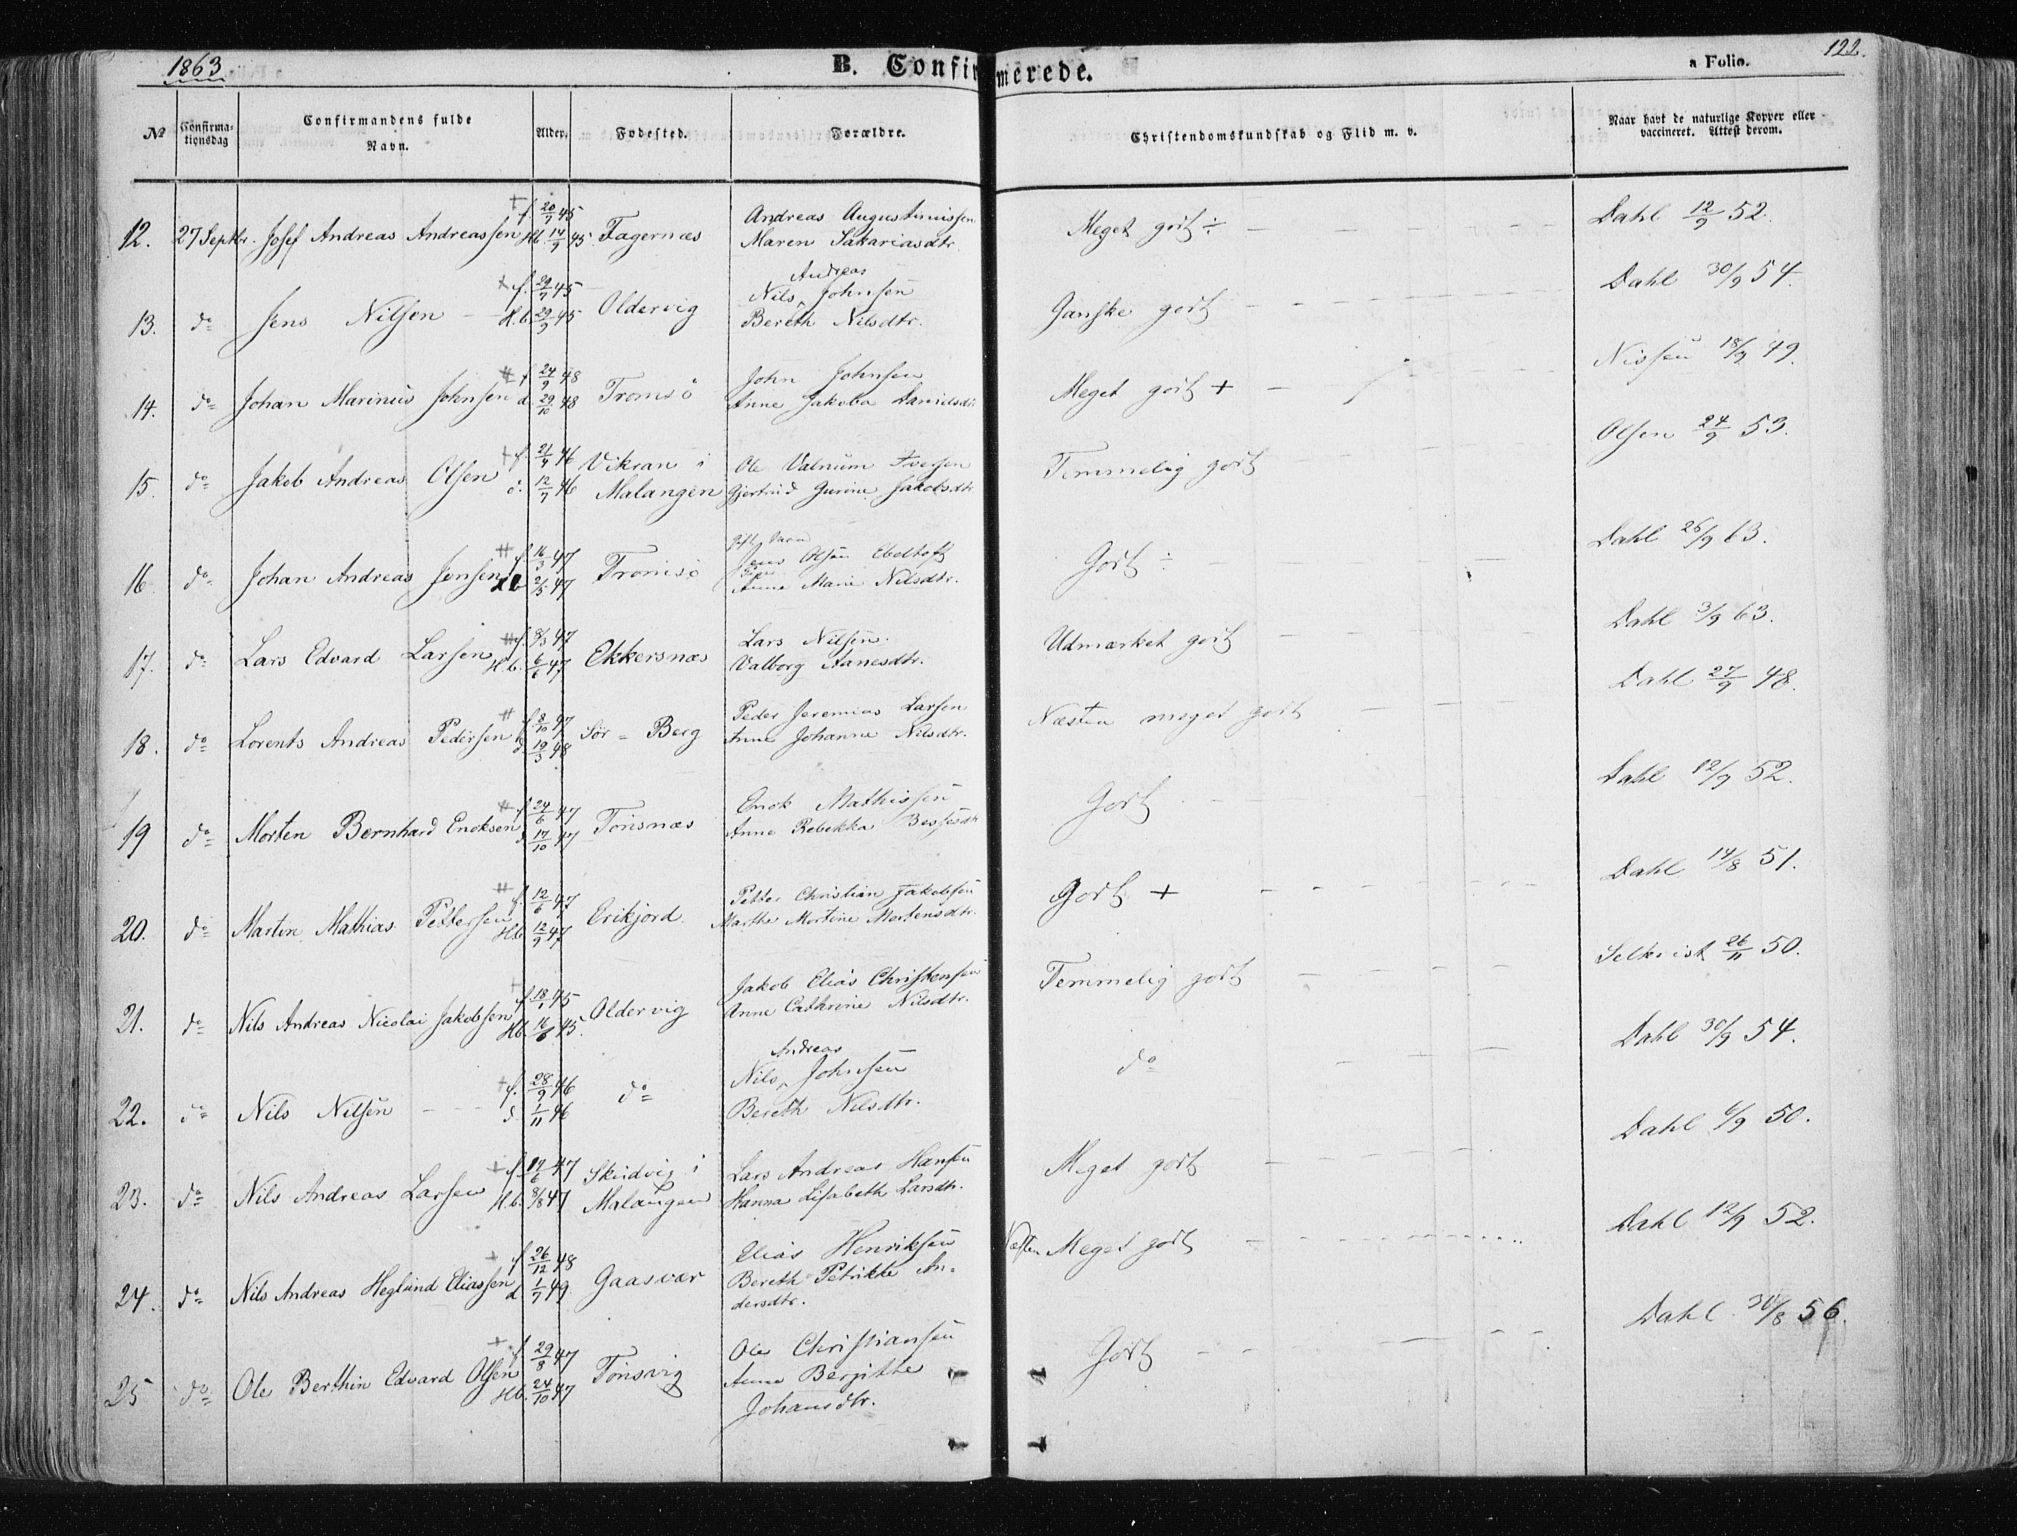 1863 B. Confirmerede. a Folio. 122.
No Confirmationsdag Confirmandens fulde Navn. Alder. Fødested. Forældre. Christendomskundskab og Flid m. v. Naar havt de naturlige Kopper eller vaccineret. Attest derom.
f. 20/7 45 Andreas Augustinussen Dahl 12/9 52.
12. 27 Septbr. Josef Andreas Andreassen Hb. 14/9 45 Fagernæs Maren Sakariasdtr. Meget godt ÷
Andreas
f. 29/7 45 Nils Johnsen Dahl 30/9 54.
13. do Jens Nilsen H.b. 29/9 45 Oldervig Bereth Nilsdtr. Ganske godt
f 24/9 48 John Johnsen Nissen 18/9 49.
14. do Johan Marinius Johnsen d. 29/10 48 Tromsö Anne Jakoba Danielsdtr. Meget godt +
f. 21/4 46 Vikran i Ole Valnum Iversen Olsen 24/9 53.
15. do Jakob Andreas Olsen d. 12/7 46 Malangen Gjertrud Gurine Jakobsdtr. Temmelig godt
f. 16/3 47 Jens Olsen Ebeltoft Dahl 26/9 63.
16 do Johan Andreas Jensen 2/5 47 Tromsö Anne Marie Nilsdtr. Godt ÷
f. 8/3 47 Lars Nilsen. Dahl 3/9 63.
17. do Lars Edvard Larsen H.b. 6/6 47 Ekkersnæs Valborg Aanesdtr. Udmærket godt
f. 8/10 47 Peder Jeremias Larsen Dahl 27/9 48.
18. do Lorents Andreas Pedersen d. 19/3 48 Sör-Berg Anne Johanne Nilsdtr. Næsten meget godt
f. 24/6 47 Enok Mathissen Dahl 12/9 52.
19 do Morten Bernhard Enoksen d. 17/10 47 Tönsnæs Anne Rebekka Godt
f. 12/6 47 Petter Christian Jakobsen Dahl 14/8 51.
20. do Martin Mathias Pettersen Hb. 12/9 47 Erikjord. Marthe Mortine Mortensdtr. Godt +
f. 18/1 45 Jakob Elias Christensen 26/11 50.
21. do Nils Andreas Nicolai Jakobsen Hb. 16/6 45. Oldervig Anne Cathrine Nilsdtr. Temmelig godt
Andreas
f. 28/9 46 Nils Johnsen Dahl 30/9 54.
22. do Nils Nilsen d. 1/11 46 do Bereth Nilsdtr. do
f. 17/6 47 Skudvig i Lars Andreas Hansen Dahl 6/9 50.
23. do Nils Andreas Larsen H.b. 8/8 47 Malangen Hanna Lisabeth Larsdtr. Meget godt
f. 26/12 48 Elias Henriksen Dahl 12/9 52.
24. do Nils Andreas Heglund Eliassen d 1/7 49 Gaasvær Bereth Petrikke Andersdtr. Næsten Meget godt
f. 29/8 47 Ole Christiansen Dahl 30/8 56.
25 do Ole Berthin Edvard Olsen Hb. 24/10 47 Tönsvig Anne Bergitte Johansdtr. Godt